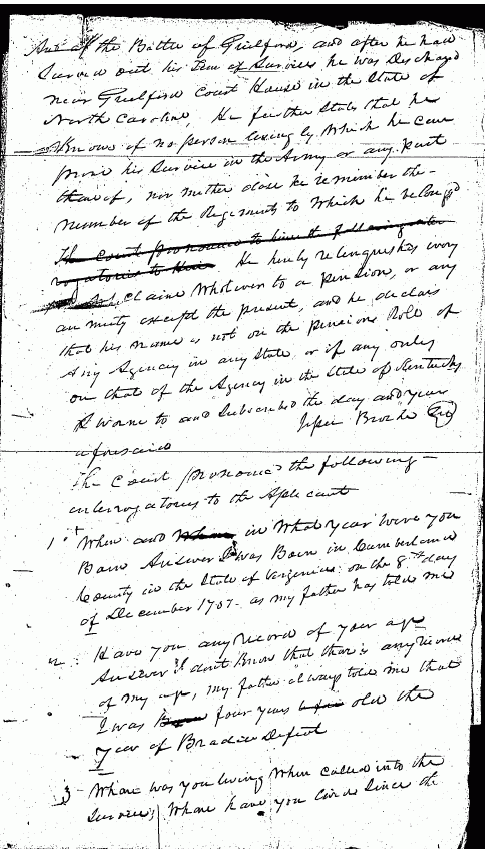 And at the Battle of Guilford, and after he had
Served out his Time of Service he was Discharged
near Guilford Court House in the State of
North Carolina, He further States that he
Knows of no person living by which he can
prove his Service in the Army or any part
thereof, nor neither dose he remember the
number of the Regiments to which he belong'd
The Court pronounce to him the following inter
rogatories to Him. He hereby relenquishes every
Claime Whatever to a pension, or any
annuity except the present, and he declars
that his name is not on the pensions Role of
Any Agency in any State or if any only
on that of the Agency in the State of Kentucky
Sworne to and Subscribed the day and year
aforesaid Jessee
The Court pronounce the following
interrogatories to the Aplicant
1st When and Where in What Year were you
Born Answer I was Born in Cumberland
County in the State of Verginia on the 8th day
of December 1757 - as my father has told me
2 - Have you any Record of your age
Answer I dont Know that thar is any Record
of my age, my father always told me that
I was four years old the
year of Bradics Defeat
3 - Whare was you living When Called into the
Service; Whare have you lived Since the